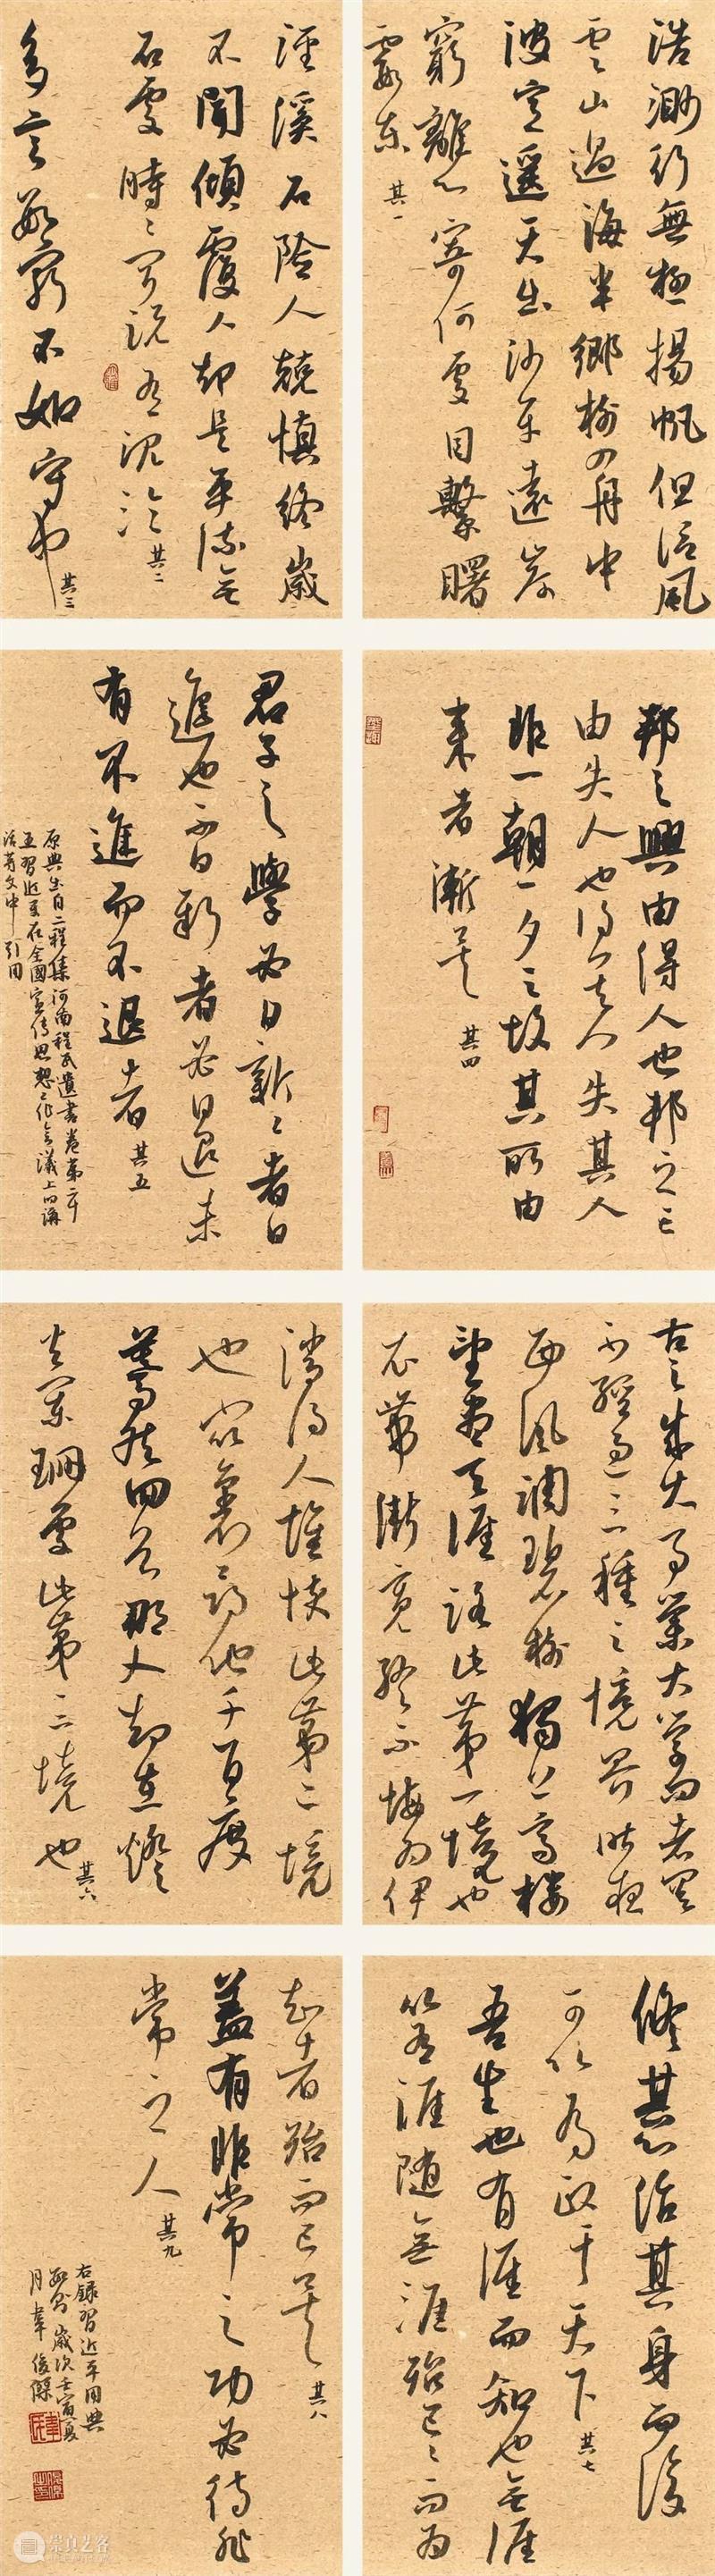 浩渺行無極揚帆但信風
雲山過海半鄉樹入舟中
波定遥天出沙平遠岸
窮離心寄何處目擊曙
霞東 其一
涇溪石险人兢慎終歲
不聞傾覆人却是平流無
石處時時聞説有沉淪 其二
多言數窮不如守中 其三
邦之興由得人也邦之亡
由失人也得其人失其人
非一朝一夕之故其所由
來者漸矣 其四
君子之學必日新日新者日
進也不日新者必日退未
有不進而不退者 其五
原典出自二程集河南程氏遺書卷第二十
五習近平在全國宣傳思想工作會議上的講
話等文中引用
古之成大事業大學問者罔
不經過三種之境界昨夜
西風凋碧樹獨上高樓
望盡天涯路此第一境也
衣帶漸寬終不悔為伊
消得人憔悴此第二境
也眾裏尋他千百度
驀然回首那人却在燈
火闌珊處此第三境也 其六
修其心治其身而後
可以為政于天下 其七
吾生也有涯而知也無涯
以有涯隨無涯殆已已而為
知者殆而已矣 其八
蓋有非常之功必待非
常之人 其九
右錄習近平用典
歲次壬寅夏
月韋俊傑
崇真艺客